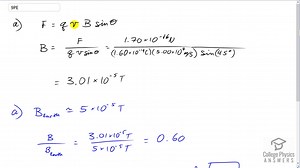 BPE
a) F = q v B sin θ
B = F / (q v sin θ) = 1.70 × 10⁻¹⁶ N / ((1.60 × 10⁻¹⁹ C)(5.00 × 10² m/s) sin(45°))
= 3.01 × 10⁻⁵ T
a) B_Earth ≃ 5 × 10⁻⁵ T
B / B_Earth = 3.01 × 10⁻⁵ T / 5 × 10⁻⁵ T = 0.60
College Physics
ANSWERS